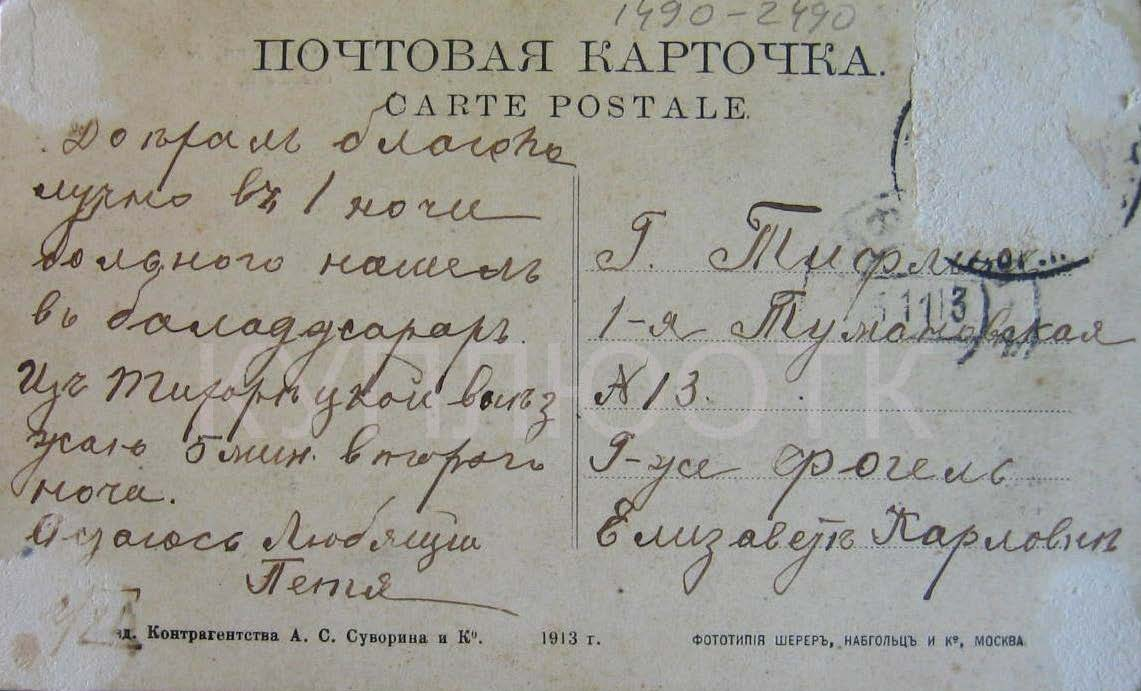 1490-2490
ПОЧТОВАЯ КАРТОЧКА.
CARTE POSTALE.
благопо
лучно въ 1 ночи
нашелъ
въ баладжарахъ.
Изъ Тихорѣцкой выѣз
жаю 5 мин. второго
ночи.
Остаюсь Любящій
Петя
Г. Тифлис
1-я Тумановская
№ 13.
Г-же Фогель
Елизаветѣ Карловнѣ
11 13
КУПЛЮОТК
зд. Контрагентства А. С. Суворина и Ко. 1913 г.
ФОТОТИПІЯ ШЕРЕРЪ, НАБГОЛЬЦЪ И Ко, МОСКВА